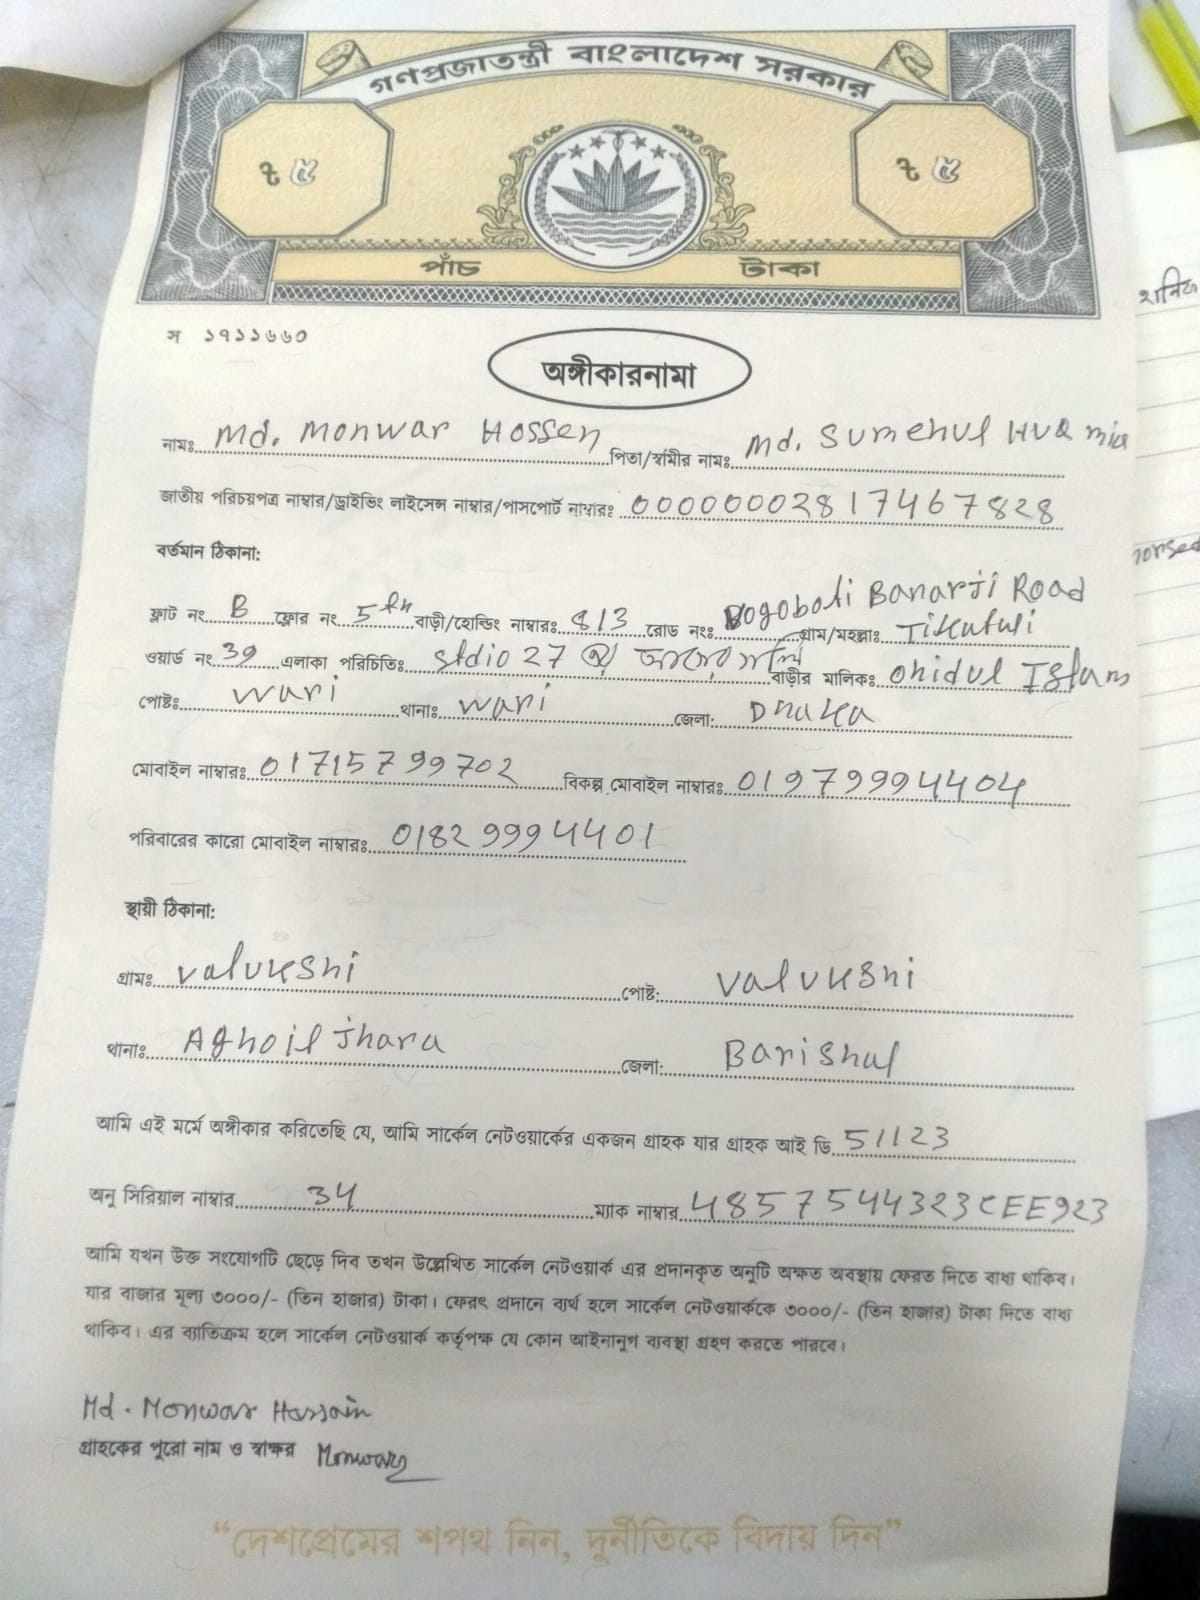 গণপ্রজাতন্ত্রী বাংলাদেশ সরকার
ট ৫ ট ৫
পাঁচ টাকা
স ১৭১১৬৬০
অঙ্গীকারনামা
নামঃ Md. Monwar Hossen পিতা/স্বামীর নামঃ Md. Sumehul HUQ mia
জাতীয় পরিচয়পত্র নাম্বার/ড্রাইভিং লাইসেন্স নাম্বার/পাসপোর্ট নাম্বারঃ 00000002817467828
বর্তমান ঠিকানা:
ফ্লাট নং B ফ্লোর নং 5th বাড়ী/হোল্ডিং নাম্বারঃ 813 রোড নংঃ Bogoboti Banarji Road গ্রাম/মহল্লাঃ Tikatuli
ওয়ার্ড নং 39 এলাকা পরিচিতিঃ stdio 27 বাড়ীর মালিকঃ Ohidul Islam
পোষ্টঃ Wari থানাঃ Wari জেলা: Dhaka
মোবাইল নাম্বারঃ 01715799702 বিকল্প মোবাইল নাম্বারঃ 01979994404
পরিবারের কারো মোবাইল নাম্বারঃ 01829994401
স্থায়ী ঠিকানা:
গ্রামঃ Valukshi পোষ্ট: Valukshi
থানাঃ Aghoil jhara জেলা: Barishal
আমি এই মর্মে অঙ্গীকার করিতেছি যে, আমি সার্কেল নেটওয়ার্কের একজন গ্রাহক যার গ্রাহক আই ডি 51123
অনু সিরিয়াল নাম্বার 34 ম্যাক নাম্বার 4857544323CEE923
আমি যখন উক্ত সংযোগটি ছেড়ে দিব তখন উল্লেখিত সার্কেল নেটওয়ার্ক এর প্রদানকৃত অনুটি অক্ষত অবস্থায় ফেরত দিতে বাধ্য থাকিব।
যার বাজার মূল্য ৩০০০/- (তিন হাজার) টাকা। ফেরৎ প্রদানে ব্যর্থ হলে সার্কেল নেটওয়ার্ককে ৩০০০/- (তিন হাজার) টাকা দিতে বাধ্য
থাকিব। এর ব্যাতিক্রম হলে সার্কেল নেটওয়ার্ক কর্তৃপক্ষ যে কোন আইনানুগ ব্যবস্থা গ্রহণ করতে পারবে।
Md. Monwar Hossain
গ্রাহকের পুরো নাম ও স্বাক্ষর Monwar
“দেশপ্রেমের শপথ নিন, দুর্নীতিকে বিদায় দিন”